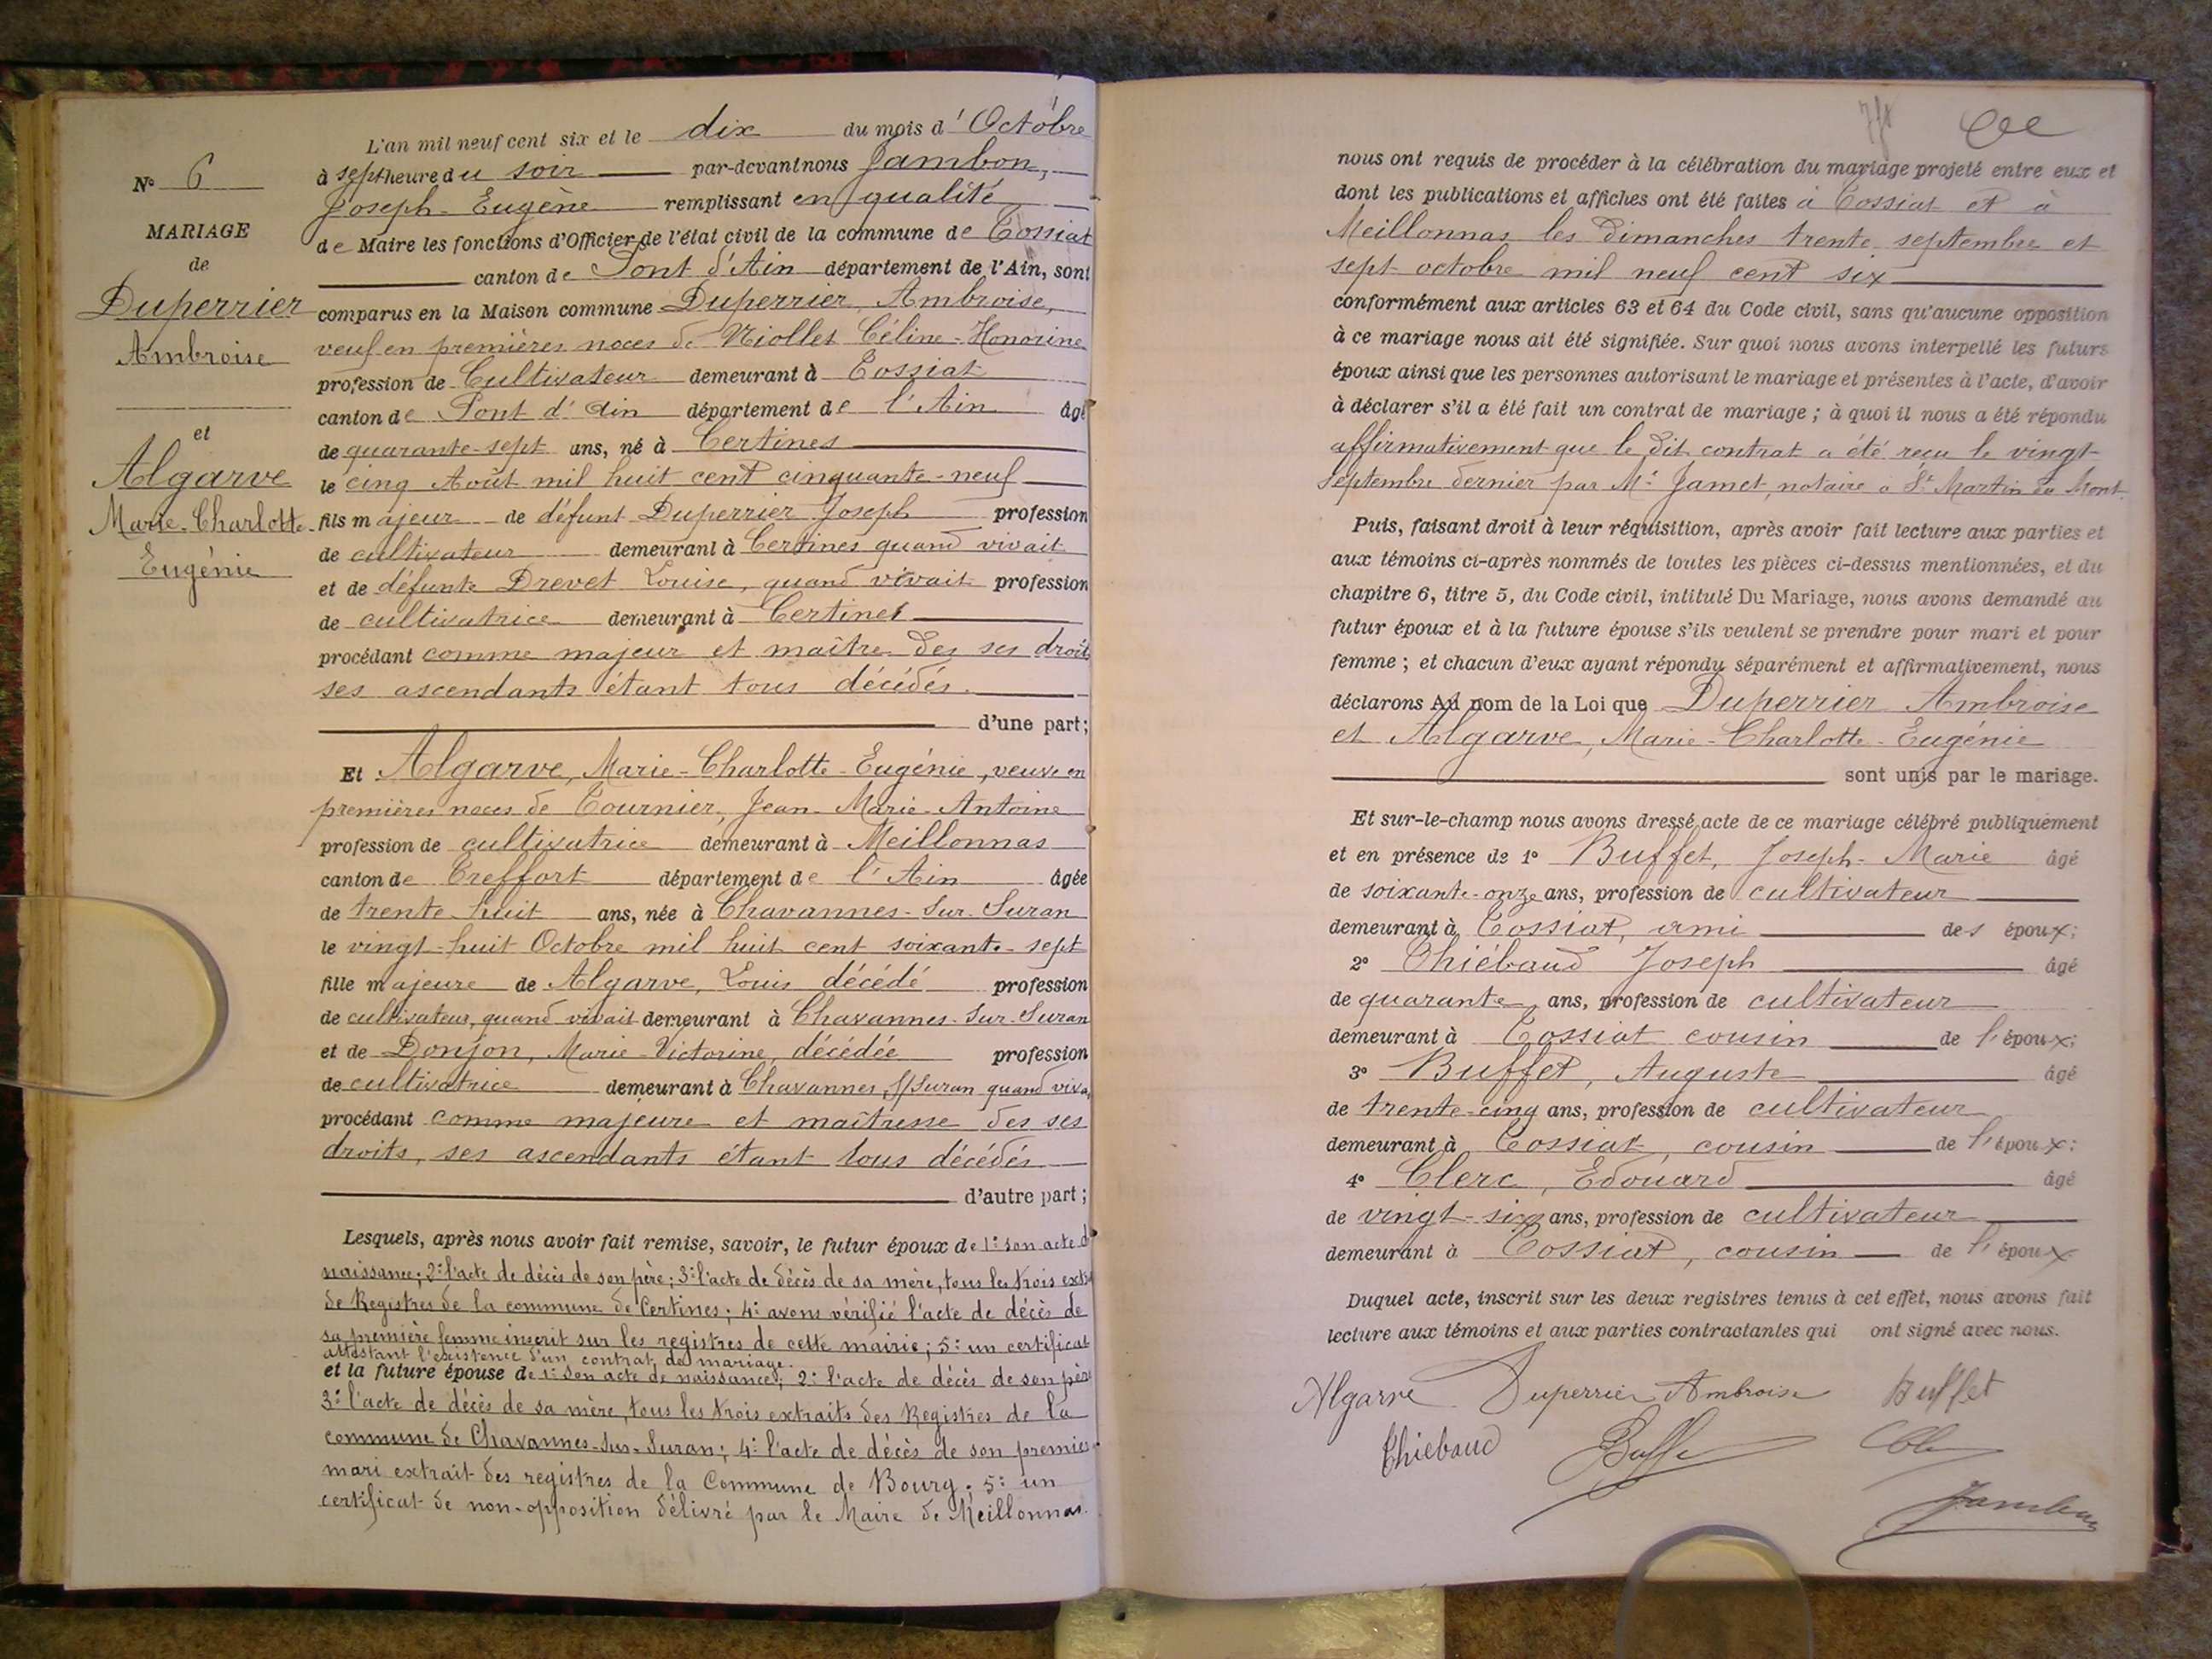 N° 6
MARIAGE
de
Duperrier
Ambroise
et
Algarve
Marie-Charlotte-
Eugénie
L'an mil neuf cent six et le dix du mois d'Octobre
à sept heure du soir par-devant nous Jambon,
Joseph-Eugène remplissant en qualité
de Maire les fonctions d'Officier de l'état civil de la commune de Tossiat
canton de Pont d'Ain département de l'Ain, sont
comparus en la Maison commune Duperrier, Ambroise,
veuf en premières noces de Niollet Céline-Honorine
profession de Cultivateur demeurant à Tossiat
canton de Pont d'Ain département de l'Ain âgé
de quarante-sept ans, né à Certines
le cinq Août mil huit cent cinquante-neuf
fils majeur de défunt Duperrier Joseph profession
de cultivateur demeurant à Certines quand vivait
et de défunte Drevet Louise, quand vivait profession
de cultivatrice demeurant à Certines
procédant comme majeur et maître des ses droits
ses ascendants étant tous décédés.
d'une part;
Et Algarve, Marie-Charlotte-Eugénie, veuve en
premières noces de Tournier, Jean-Marie-Antoine
profession de cultivatrice demeurant à Meillonnas
canton de Treffort département de l'Ain âgée
de trente huit ans, née à Chavannes-sur-Suran
le vingt-huit Octobre mil huit cent soixante-sept
fille majeure de Algarve, Louis décédé profession
de cultivateur, quand vivait demeurant à Chavannes-sur-Suran
et de Donjon, Marie-Victorine, décédée profession
de cultivatrice demeurant à Chavannes s/Suran quand viva
procédant comme majeure et maîtresse des ses
droits, ses ascendants étant tous décédés
d'autre part;
Lesquels, après nous avoir fait remise, savoir, le futur époux de 1° son acte d
naissance; 2° l'acte de décès de son père; 3° l'acte de décès de sa mère, tous les trois ext
de Registres de la commune de Certines; 4° avons vérifié l'acte de décès de
sa première femme inscrit sur les registres de cette mairie; 5° un certificat
attestant l'existence d'un contrat de mariage.
et la future épouse de 1° son acte de naissance; 2° l'acte de décès de son père
3° l'acte de décès de sa mère, tous les trois extraits des Registres de la
commune de Chavannes-sur-Suran; 4° l'acte de décès de son premier
mari extrait des registres de la Commune de Bourg; 5° un
certificat de non-opposition délivré par le Maire de Meillonnas.
nous ont requis de procéder à la célébration du mariage projeté entre eux et
dont les publications et affiches ont été faites à Tossiat et à
Meillonnas les dimanches trente septembre et
sept octobre mil neuf cent six
conformément aux articles 63 et 64 du Code civil, sans qu'aucune opposition
à ce mariage nous ait été signifiée. Sur quoi nous avons interpellé les futurs
époux ainsi que les personnes autorisant le mariage et présentes à l'acte, d'avoir
à déclarer s'il a été fait un contrat de mariage; à quoi il nous a été répondu
affirmativement que le dit contrat a été reçu le vingt
septembre dernier par Me Jamet, notaire à St Martin du Mont.
Puis, faisant droit à leur réquisition, après avoir fait lecture aux parties et
aux témoins ci-après nommés de toutes les pièces ci-dessus mentionnées, et du
chapitre 6, titre 5, du Code civil, intitulé Du Mariage, nous avons demandé au
futur époux et à la future épouse s'ils veulent se prendre pour mari et pour
femme; et chacun d'eux ayant répondu séparément et affirmativement, nous
déclarons Au nom de la Loi que Duperrier Ambroise
et Algarve, Marie-Charlotte-Eugénie
sont unis par le mariage.
Et sur-le-champ nous avons dressé acte de ce mariage célébré publiquement
et en présence de 1° Buffet, Joseph-Marie âgé
de soixante-onze ans, profession de cultivateur
demeurant à Tossiat, ami des époux;
2° Thiébaud Joseph âgé
de quarante ans, profession de cultivateur
demeurant à Tossiat cousin de l'époux;
3° Buffet, Auguste âgé
de trente-cinq ans, profession de cultivateur
demeurant à Tossiat, cousin de l'époux;
4° Clerc, Edouard âgé
de vingt-six ans, profession de cultivateur
demeurant à Tossiat, cousin de l'époux
Duquel acte, inscrit sur les deux registres tenus à cet effet, nous avons fait
lecture aux témoins et aux parties contractantes qui ont signé avec nous.
Algarve Duperrier Ambroise Buffet
Thiebaud Buffe
Jambon